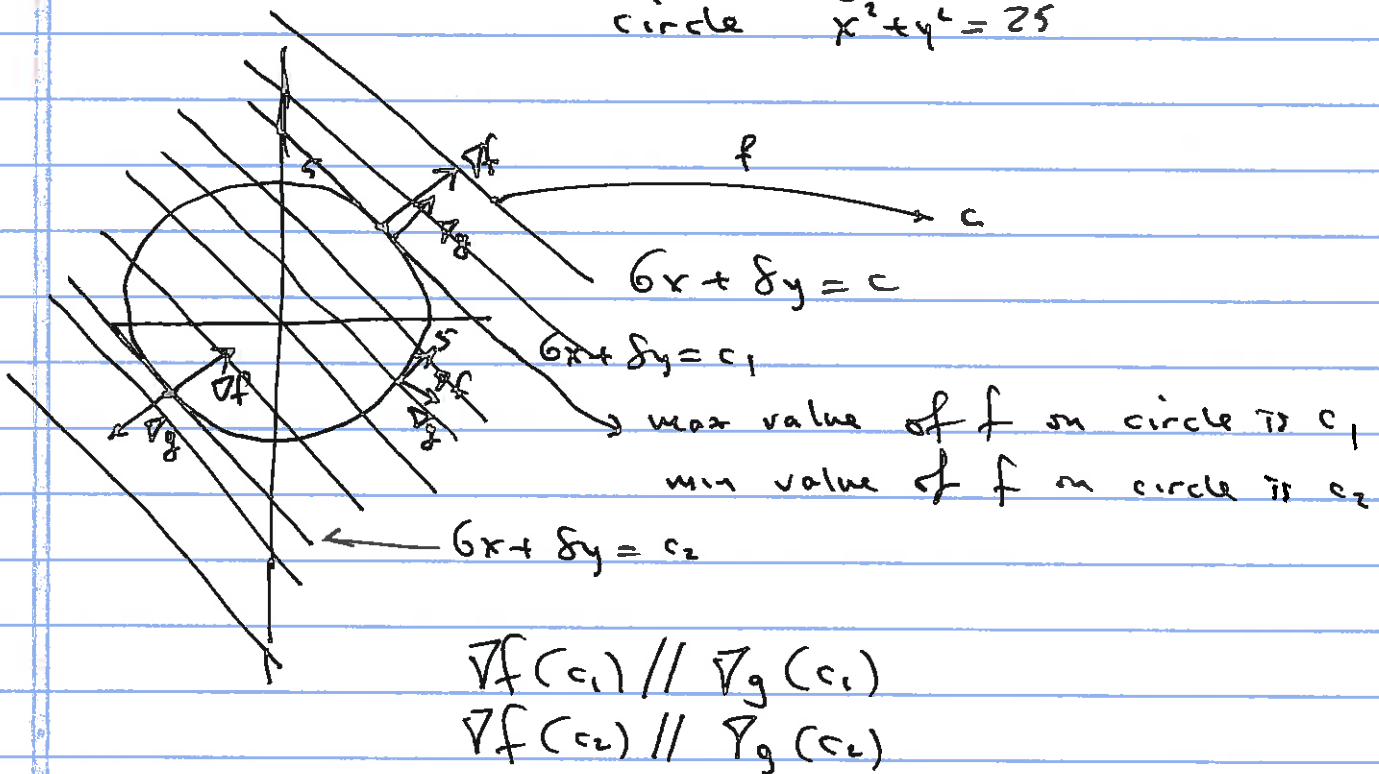 circle x² + y² = 25
∇f
f
5
c
∇g
6x + 8y = c
5
6x + 8y = c₁
∇f
∇f
∇g
max value of f on circle is c₁
∇g
min value of f on circle is c₂
6x + 8y = c₂
∇f(c₁) // ∇g(c₁)
∇f(c₂) // ∇g(c₂)